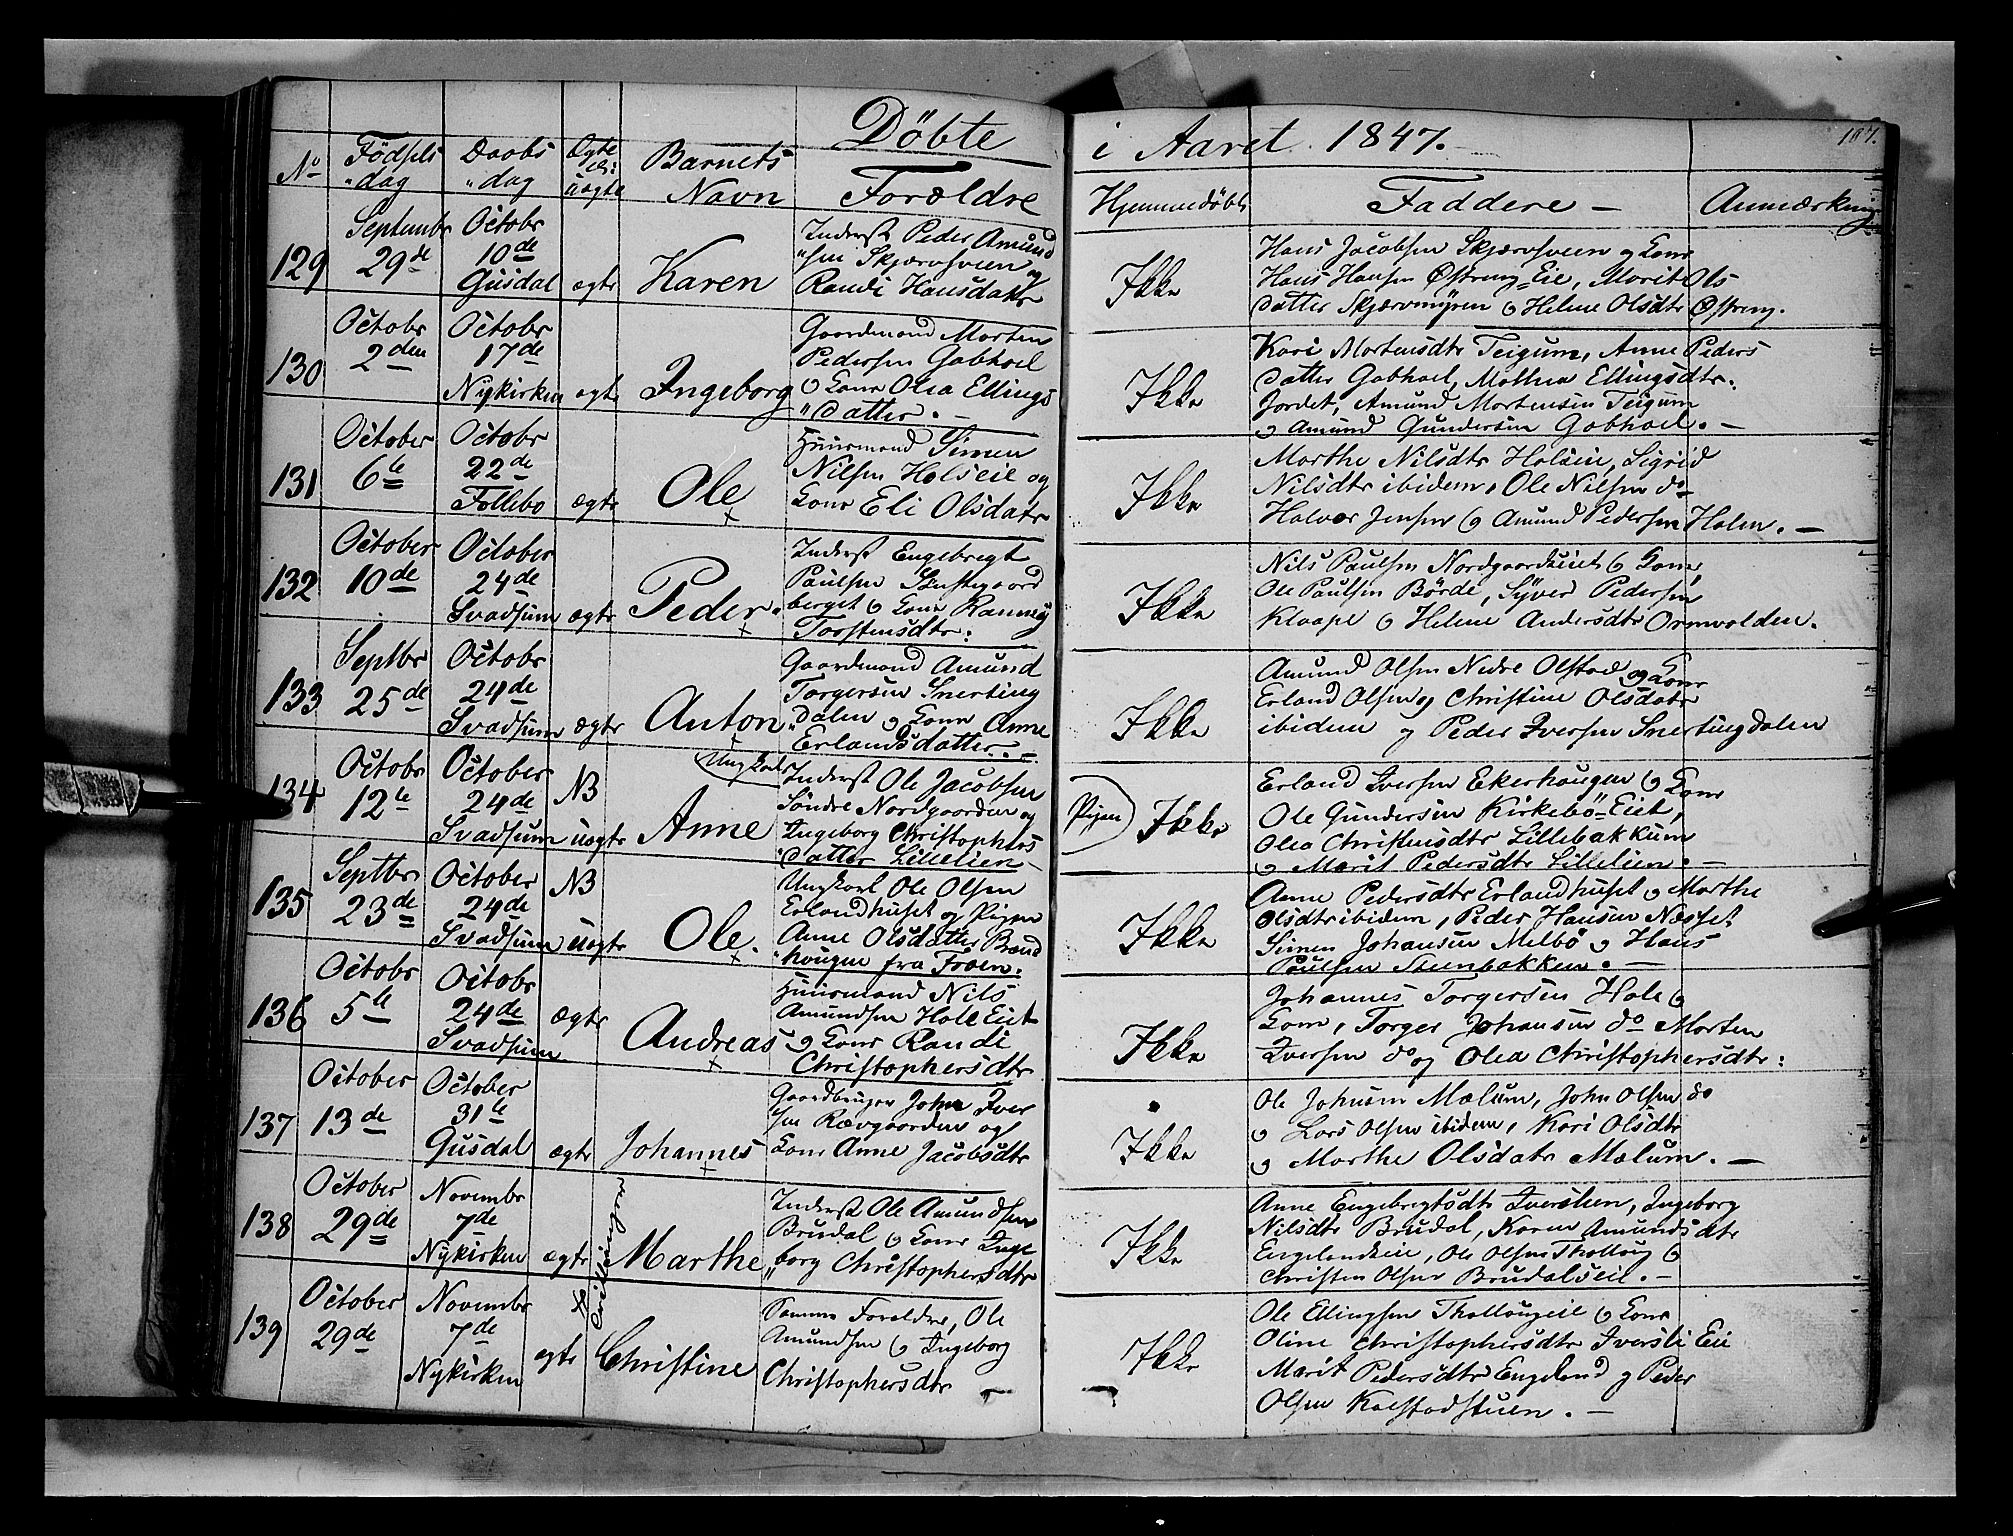 Döbte i Aaret 1847. 187.
No Födsels dag Daabs dag Ægte el: uægte Barnets Navn Forældre Hjemmedöbt Faddere Anmærkning
129 Septembr 29de Octobr 10de Gusdal ægte Karen
Inderst Peder Amund
sen Skjærvsveen og
Randi Hansdatr
Ikke
Hans Jacobsen Skjærvsveen og Kone
Hans Hansen Østreng Eie, Marit Ols
datter Skjærvmyren og Helene Olsdtr Østreng.
130 Octobr 2den Octobr 17de Nykirken ægte Ingeborg
Gaardmand Morten
Pedersen Gobhoel
og Kone Olea Ellings
datter.
Ikke
Kari Mortensdtr Teigum, Anne Peders
datter Gobhoel, Mathea Ellingsdtr.
Jordet, Amund Mortensen Teigum
og Amund Gundersen Gobhoel.
131 October 6te Octobr 22de Follebo ægte Ole
Huusmand Simen
Nilsen Holseie og
Kone Eli Olsdatr
Ikke
Marthe Nilsdtr Holseie, Sigrid
Nilsdtr ibidem, Ole Nilsen do
Halvor Jensen og Amund Pedersen Holen.
132 October 10de October 24de Svadsum ægte Peder.
Inderst Engebregt
Paulsen
berget og Kone Rannig
Torstensdtr.
Ikke
Nils Paulsen Nordgaardseiet og Kone,
Ole Paulsen Börde, Syver Pedersen
Klaape og Helene Andersdtr Ormvolden.
133 Septbr 25de Octobr 24de Svadsum ægte Anton
Gaardmand Amund
Torgersen Snerting
dalen og Kone Anne
Erlandsdatter.
Ikke
Amund Olsen Nedre Olstad og Kone
Erland Olsen og Christine Olsdatr
ibidem og Peder Iversen Snertingdalen
134 Octobr 12te October 24de Svadsum NB uægte Anne
Ungkarl
Inderst Ole Jacobsen
Söndre Nordgaarden og
Ingeborg Christophers
datter Lillelien
Pigen
Ikke
Erland Iversen Ekerhougen og Kone
Ole Gundersen Kirkebö Eiet,
Olea Christensdtr Lillebakkum
og Marit Pedersdtr Lillelien.
135 Septbr 23de October 24de Svadsum NB uægte Ole.
Ungkarl Ole Olsen
Erlandhuset og Pigen
Anne Olsdatter Brænd
hougen fra Froen.
Ikke
Anne Pedersdtr Erlandhuset og Marthe
Olsdtr ibidem, Peder Hansen Næsset
Simen Johansen Melbö og Hans
Paulsen Steenbakken.
136 Octobr 5te Octobr 24de Svadsum ægte Andreas
Huusmand Nils
Amundsen Holl Eiet
og Kone Randi
Christophersdtr
Ikke
Johannes Torgersen Hole og
Kone, Torger Johansen do Morten
Iversen do og Olea Christophersdtr:
137 October 13de October 31te Gusdal ægte Johannes
Gaardbruger John Iver
sen Rævgaarden og
Kone Anne Jacobsdtr
Ikke
Ole Johnsen Mælum, John Olsen do
og Lars Olsen ibidem, Kari Olsdtr
og Marthe Olsdatr Mælum.
138 October 29de Novembr 7de Nykirken ægte Marthe
Tvillingern
Inderst Ole Amundsen
Brudal og Kone Inge
borg Christophersdtr
Ikke
Anne Engebregtsdtr Iverslien, Ingeborg
Nilsdtr Brudal, Karen Amundsdtr
Engelandseie, Ole Olsen Tholloug og
Christen Olsen Brudalseie.
139 October 29de Novembr 7de Nykirken ægte Christine
Samme Forældre, Ole
Amundsen og Ingeborg
Christophersdtr
Ikke
Ole Ellingsen Thollougeie og Kone
Oline Christophersdtr Iversli Eie
Marit Pedersdtr Engeland og Peder
Olsen Kalstadstuen.